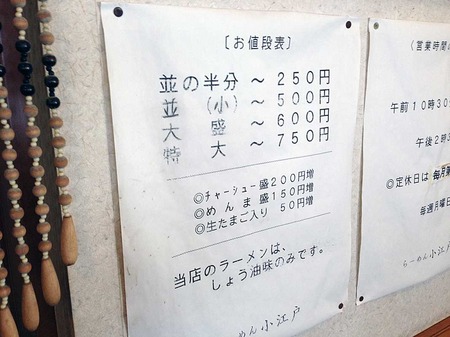 〔お値段表〕
並の半分 ～ 250円
並（小）～ 500円
大 盛 ～ 600円
特 大 ～ 750円
◎チャーシュー盛200円増
◎めんま 盛150円増
◎生たまご入り 50円増
当店のラーメンは、
しょう油味のみです。
めん小江戸
（営業時間
午前10時30
午後2時3
◎定休日は 毎月
毎週月曜日
らーめん小江戸